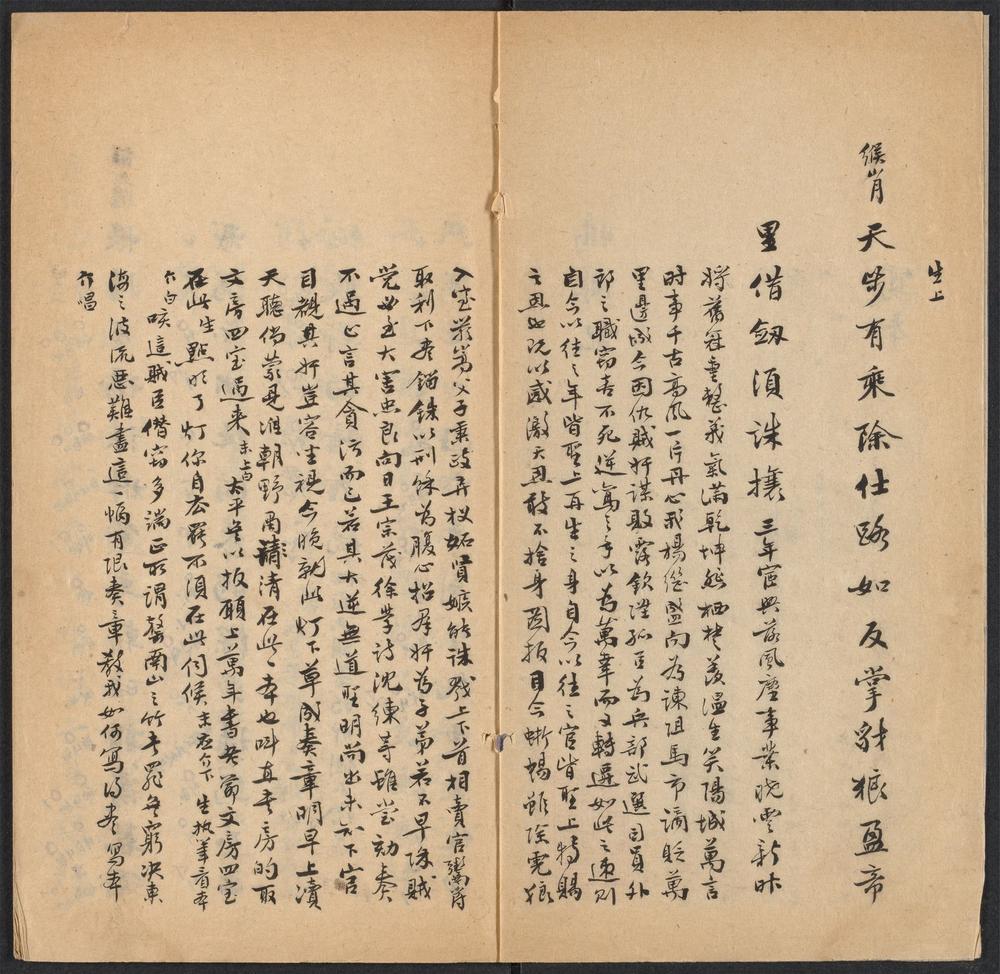 生上
緱肖天步有乘除仕路如反掌豺狼盈帝
里借劔須誅攘三年宦興落風塵事業晚雲新昨
將舊冠重整義氣滿乾坤能栖梣羡溫生笑陽城萬言
時事千古高風一片丹心我楊繼盛向為諫阻馬市謫貶萬
里邊城今因仇賊奸謀敗露欽陞孤臣為兵部武選司員外
郎之職竊喜不死逆鸞之手以為萬幸而又轉遷如此之速則
自今以往之年皆聖上再生之身自今以往之官皆聖上特賜
之恩也既以感激天恩敢不捨身圖报目今蜥蜴雖除虎狼
入室嚴嵩父子專政弄权妬賢嫉能誅戮上下首相賣官鬻爵
取利下盡錙銖以刑餘為腹心招羣奸為子弟若不早除賊
党必至大害忠良向日王宗茂徐學詩沈練等雖當劾奏
不過止言其貪污而已若其大逆無道聖明尚出未知下官
目覩其奸豈容坐視今晚就此灯下草成奏章明早上瀆
天聽倘蒙見准朝野肅清在此一本也叫直書房的取
文房四宝過來末上白太平無以报願上萬年書老爺文房四宝
在此生點明了灯你自去罷不須在此伺候末应介下生执筆看本
介白咳這賊臣僭竊多端正所謂罄南山之竹書罪無窮決東
海之波流惡難盡這一幅有限奏章教我如何寫得盡寫本
介唱